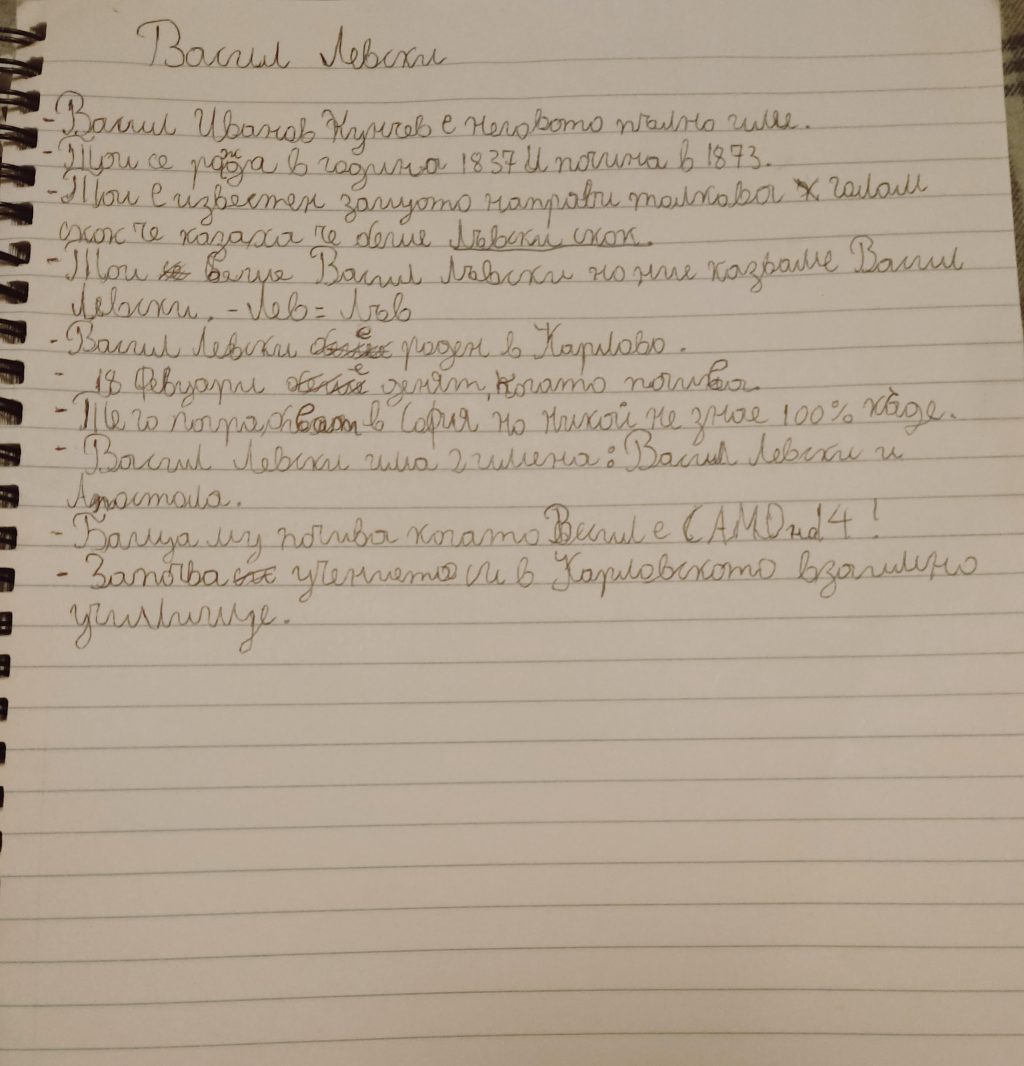 Васил Левски
- Васил Иванов Кунчев е неговото пълно име.
- Той се ражда в година 1837 И почина в 1873.
- Той е известен защото направи толкова голам
скок че казаха че беше Лъвски скок.
- Той беше Васил Лъвски но ние казваме Васил
Левски. - Лев = Лъв
- Васил Левски е роден в Карлово.
- 18 Февуари е денят, когато почива.
- Него погра,хват в София но никой не знае 100% къде.
- Васил Левски има 2 имена: Васил Левски и
Апостола.
- Баща му почива когато Васил е САМО на 14!
- Започва учението си в Карловското взаимно
училище.